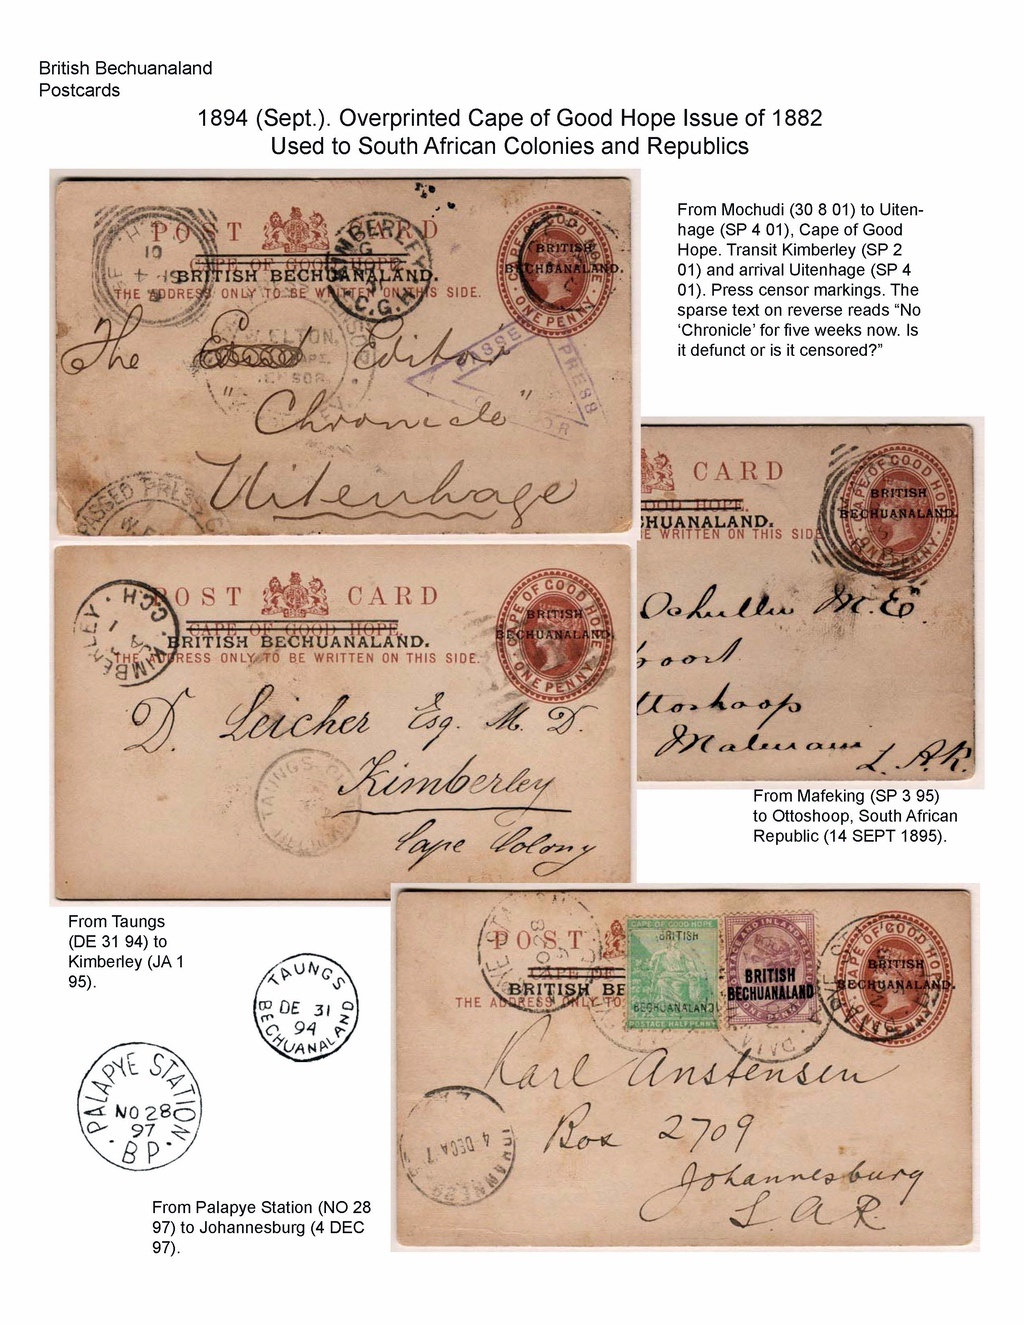 British Bechuanaland
Postcards
1894 (Sept.). Overprinted Cape of Good Hope Issue of 1882
Used to South African Colonies and Republics
POST CARD
CAPE OF GOOD HOPE
BRITISH BECHUANALAND.
THE ADDRESS ONLY TO BE WRITTEN ON THIS SIDE.
CAPE OF GOOD HOPE
BRITISH
BECHUANALAND.
ONE PENNY
KIMBERLEY
C.G.H.
The Editor
"Chronicle"
Uitenhage
PASSED PRESS
From Mochudi (30 8 01) to Uiten-
hage (SP 4 01), Cape of Good
Hope. Transit Kimberley (SP 2
01) and arrival Uitenhage (SP 4
01). Press censor markings. The
sparse text on reverse reads “No
‘Chronicle’ for five weeks now. Is
it defunct or is it censored?”
CARD
OOD HOPE.
HUANALAND.
E WRITTEN ON THIS SIDE
CAPE OF GOOD HOPE
BRITISH
BECHUANALAND.
ONE PENNY
M.E.
From Mafeking (SP 3 95)
to Ottoshoop, South African
Republic (14 SEPT 1895).
POST CARD
CAPE OF GOOD HOPE
BRITISH BECHUANALAND.
THE ADDRESS ONLY TO BE WRITTEN ON THIS SIDE.
CAPE OF GOOD HOPE
BRITISH
BECHUANALAND.
ONE PENNY
KIMBERLEY
C.G.H
D. Leicher Esq. M. D.
Kimberley
Cape Colony
TAUNGS
From Taungs
(DE 31 94) to
Kimberley (JA 1
95).
TAUNGS
DE 31
94
BECHUANALAND
PALAPYE STATION
NO 28
97
B P
From Palapye Station (NO 28
97) to Johannesburg (4 DEC
97).
POST
CAPE OF
BRITISH BE
THE ADDRESS ONLY TO
CAPE OF GOOD HOPE
BRITISH
BECHUANALAND
POSTAGE HALFPENNY
POSTAGE AND INLAND REVENUE
BRITISH
BECHUANALAND
ONE PENNY
CAPE OF GOOD HOPE
BRITISH
BECHUANALAND.
Karl Anstensen
Box 2709
Johannesburg
S. A. R.
4 DEC